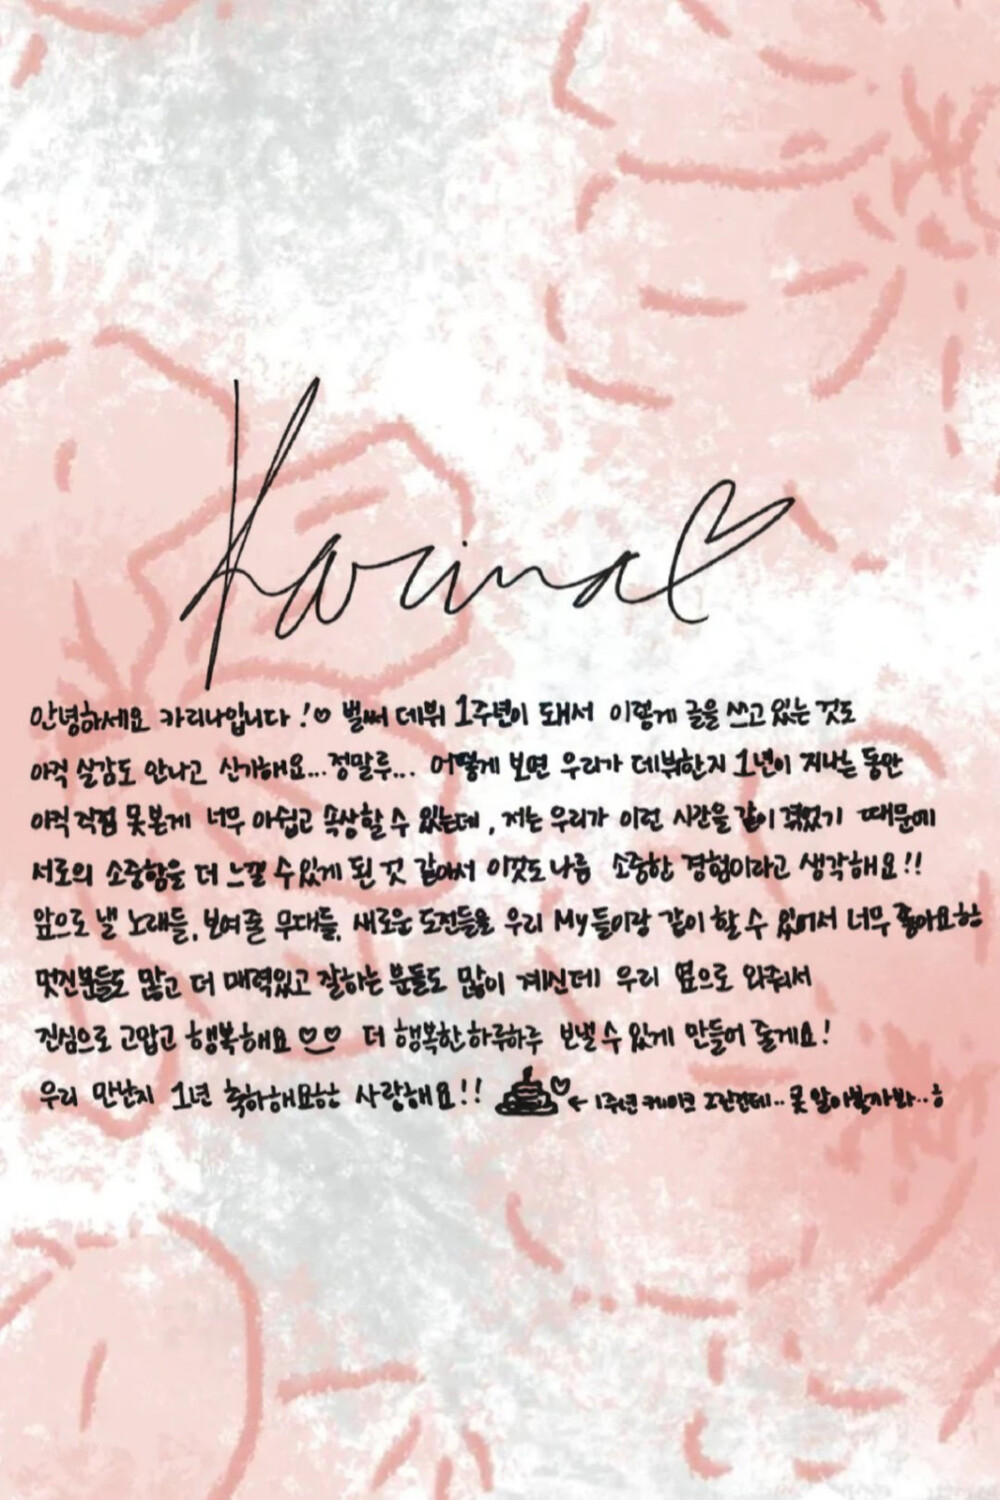 Karina♡
안녕하세요 카리나입니다 !♡ 벌써 데뷔 1주년이 돼서 이렇게 글을 쓰고 있는 것도
아직 실감도 안나고 신기해요...정말루... 어떻게 보면 우리가 데뷔한지 1년이 지나는 동안
아직 직접 못본게 너무 아쉽고 속상할 수 있는데, 저는 우리가 이런 시간을 같이 겪었기 때문에
서로의 소중함을 더 느낄 수 있게 된 것 같아서 이것도 나름 소중한 경험이라고 생각해요!!
앞으로 낼 노래들, 보여줄 무대들, 새로운 도전들을 우리 My들이랑 같이 할 수 있어서 너무 좋아요
멋진분들도 많고 더 매력있고 잘하는 분들도 많이 계신데 우리 옆으로 와줘서
진심으로 고맙고 행복해요 ♡♡ 더 행복한 하루하루 보낼 수 있게 만들어 줄게요!
우리 만난지 1년 축하해요 사랑해요!! ♡ ← 1주년 케이크 그린건데.. 못 알아볼까봐..ㅎ